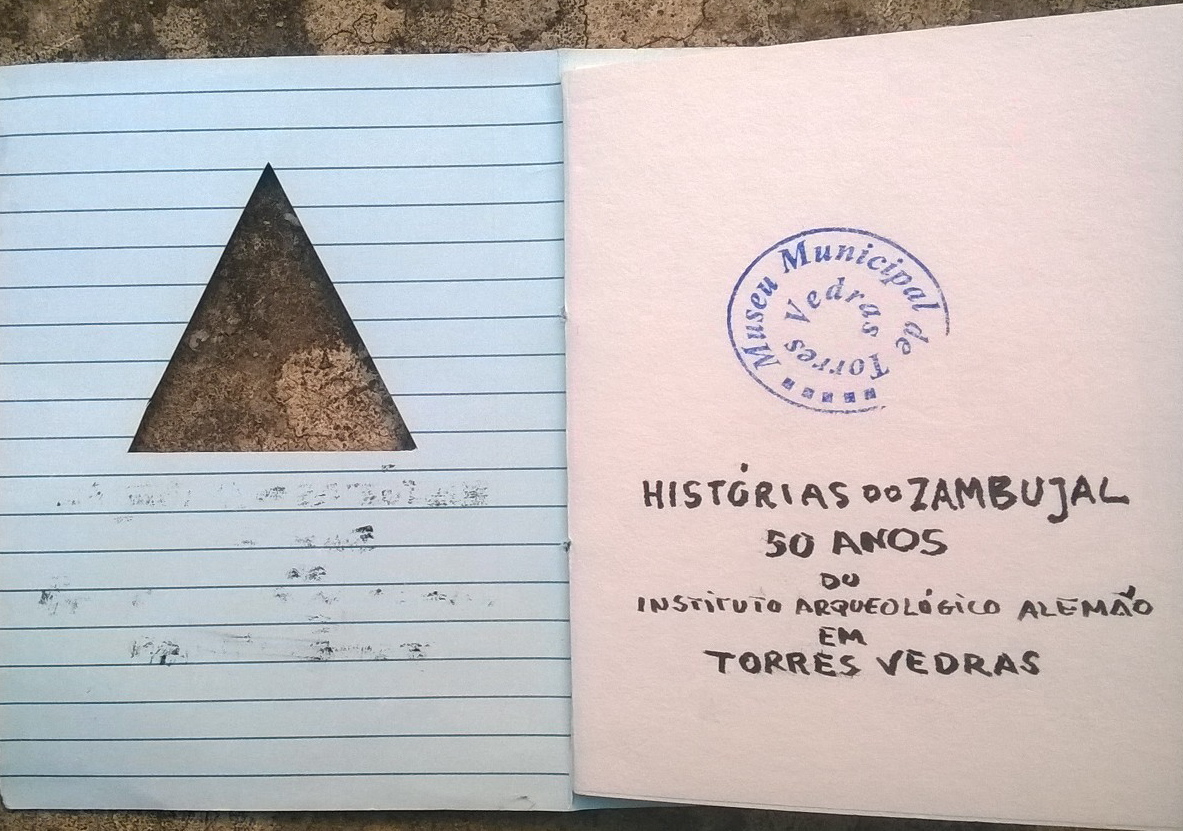 Museu Municipal de
Torres Vedras
HISTÓRIAS DO ZAMBUJAL
50 ANOS
DO
INSTITUTO ARQUEOLÓGICO ALEMÃO
EM
TORRES VEDRAS